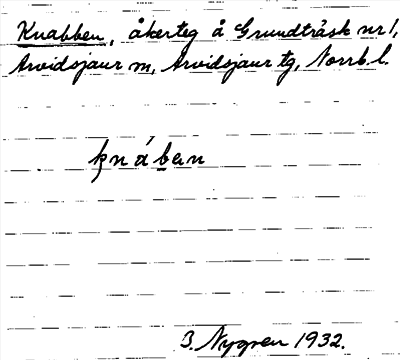 Knabben, åkerteg å Grundträsk nr 1,
Arvidsjaur sn, Arvidsjaur tg, Norrb. l.
knában
B. Nygren 1932.